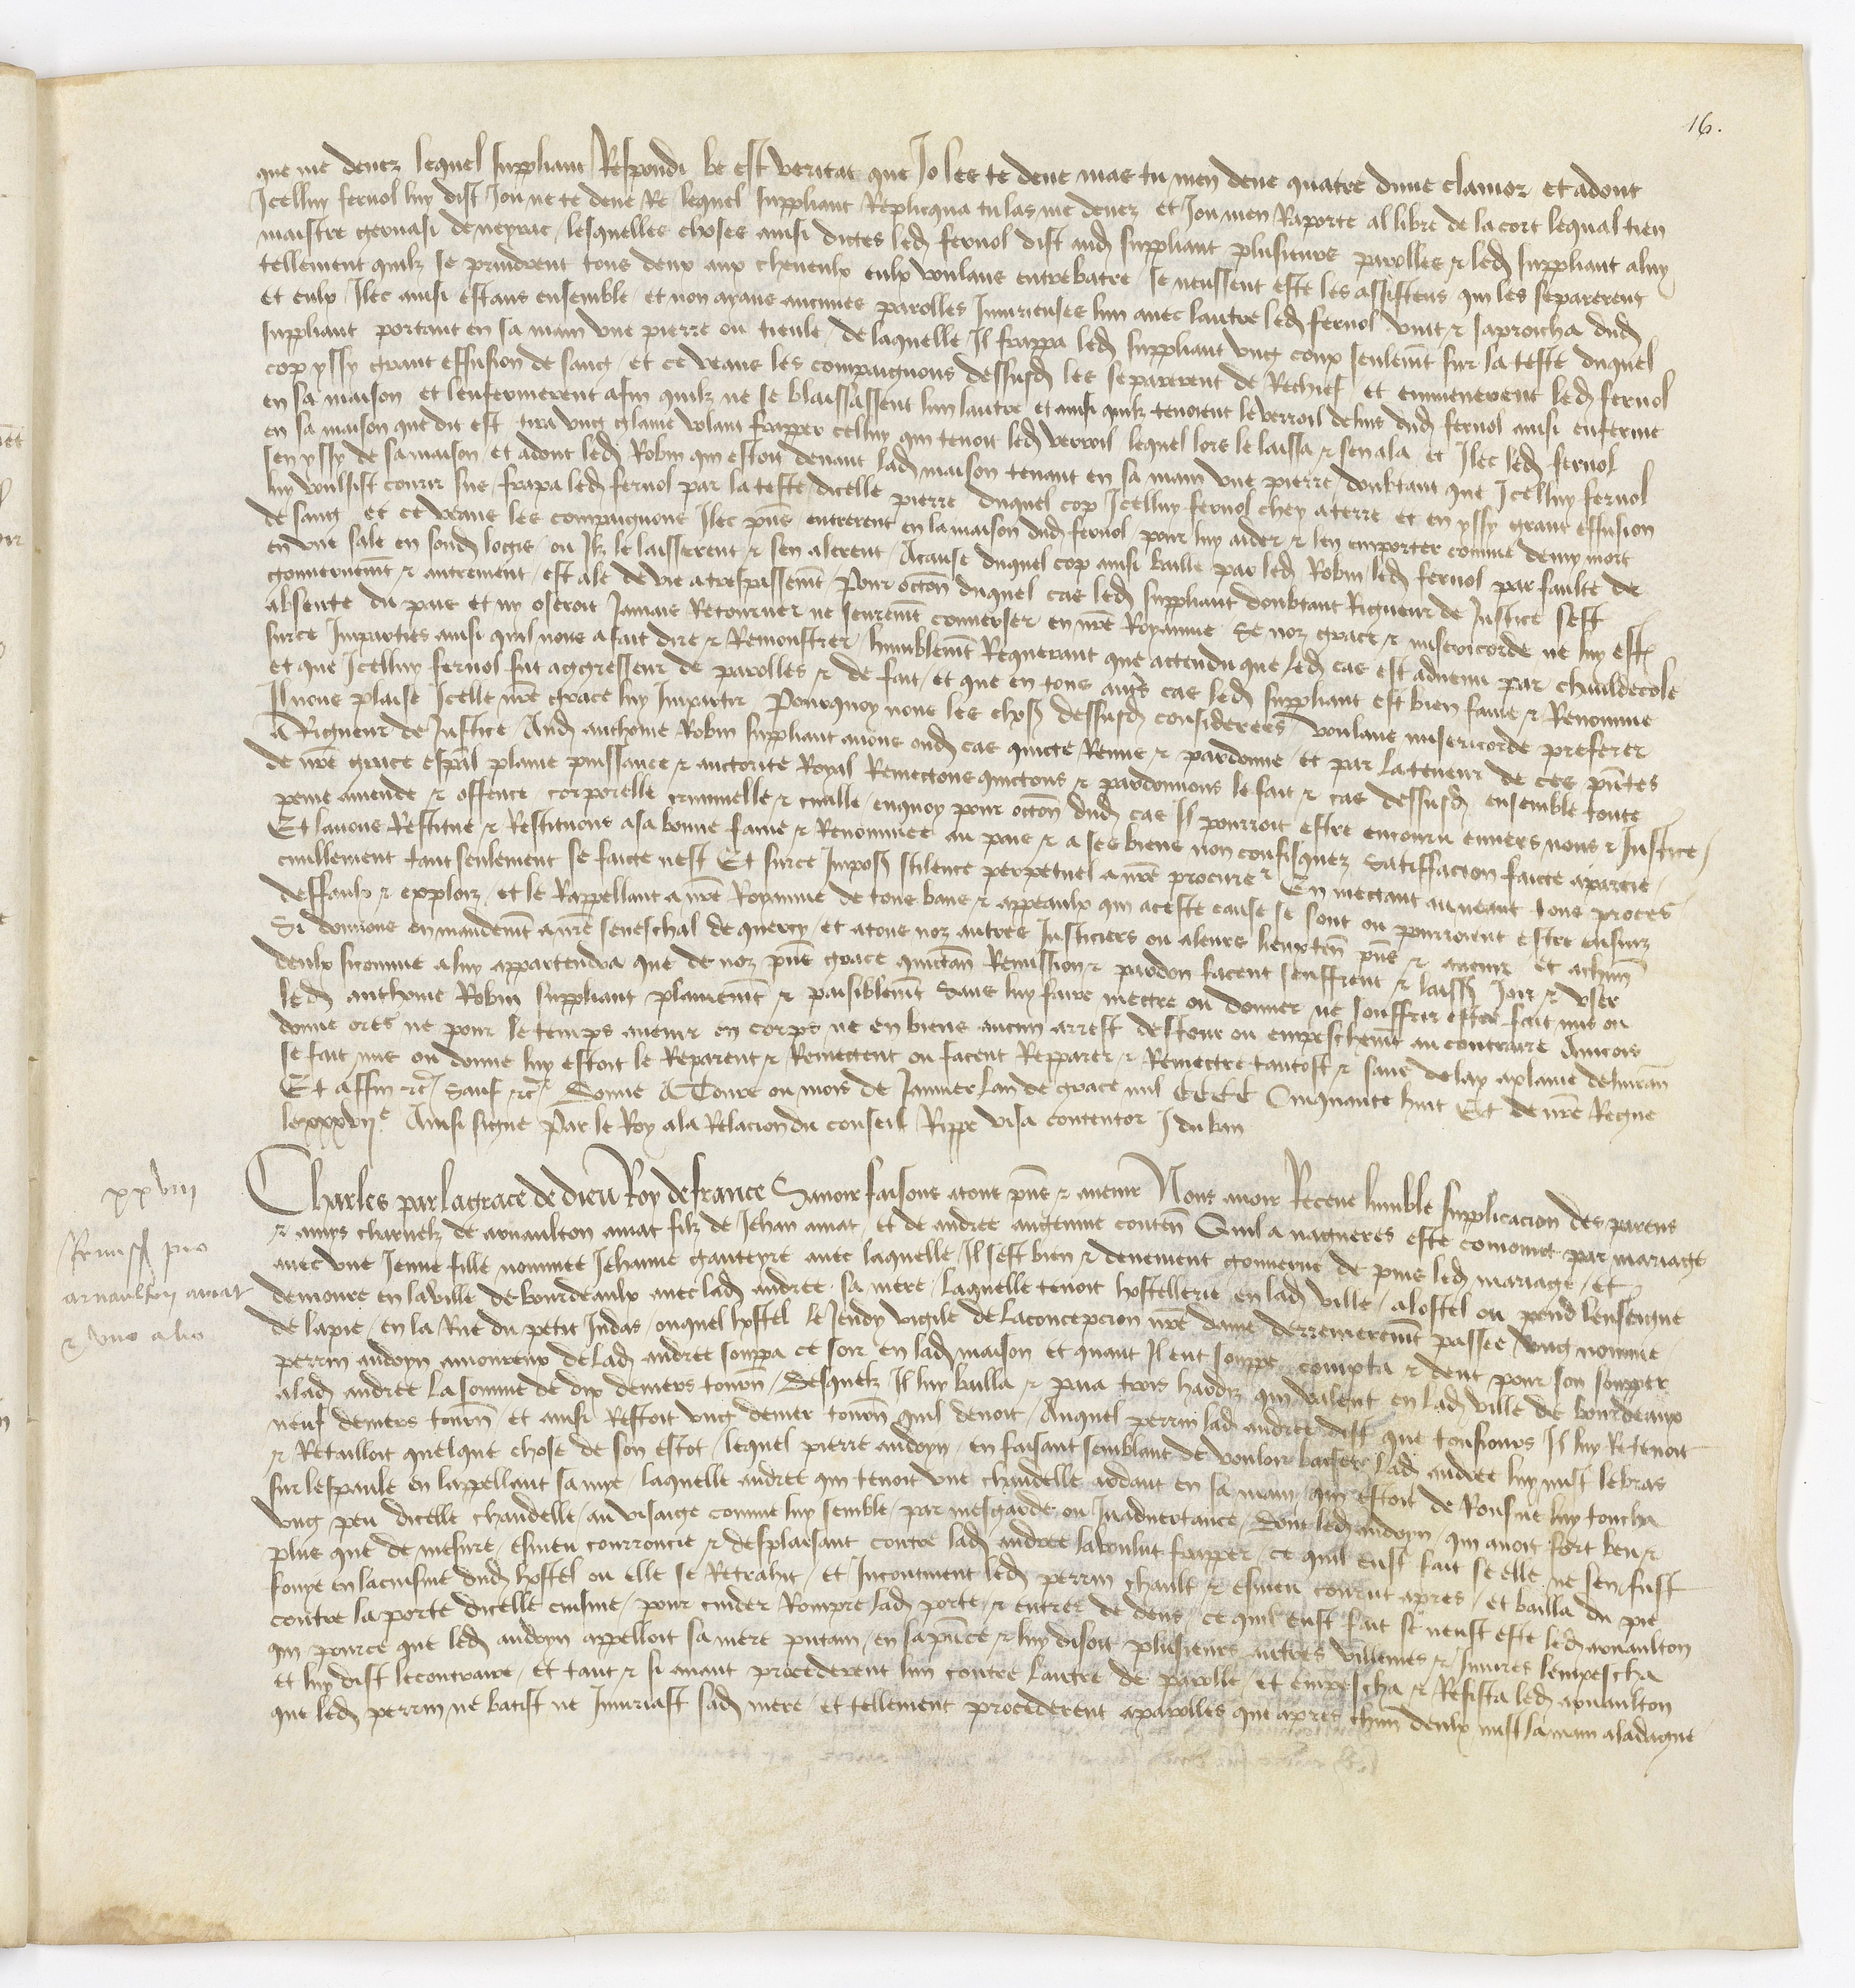 16.
que me devez lequel suppliant Respondi be est veritat que Jo les te deve mas tu men deve quatre dune clamor et adont
Icelluy fernol luy dist Jou ne te deve Re lequel suppliant Replicqua tu las me devez et Jou men Raporte al libre de la cort lequal tien
maistre gervasi de neyrac, lesquelles choses ainsi dictes led fernol dist aud suppliant plusieurs parolles & led suppliant a luy
tellement quilz se prindrent tous deux aux cheveulx eulx voulans entrebatre se neussent este les assistens qui les separerent
et eulx Ilec ainsi estans ensemble et non ayans aucunes parolles Iniurieuses lun avec lautre led fernol vint & saproucha dud
suppliant portant en sa main une pierre ou tieule de laquelle Il frappa led suppliant ung coup seulemt sur la teste duquel
cop yssy grant effusion de sang et ce veans les compaignons dessusd les separerent de Rechief et emmenerent led fernol
en sa maison et lenfermerent afin quilz ne se blaissassent lun lautre et ainsi quilz tenoient le verroil de luis dud fernol ainsi enferme
en sa maison que dit est tira ung glaive volant frapper celluy qui tenoit led verroil lequel lors le laissa & sen ala et Ilec led fernol
sen yssy de sa maison et adont led Robin qui estoit devant lad maison tenant en sa main une pierre doubtant que Icelluy fernol
luy voulsist courir sus frapa led fernol par la teste dicelle pierre duquel cop Icelluy fernol chey a terre et en yssy grant effusion
de sang et ce veans les compaignons Ilec pns entrerent en la maison dud fernol pour luy aider & len emporter comme demy mort
en une sale en sond logis ou Ilz le laisserent & sen alerent A cause duquel cop ainsi baille par led Robin led fernol par faulte de
gouvernemt & autrement est ale de vie a trespassemt Pour occon duquel cas led suppliant doubtant Rigueur de Justice sest
absente du pais et ny oseroit Jamais Retourner ne seuremt converser en nre Royaume se noz grace & misericorde ne luy est
sur ce Imparties ainsi quil nous a fait dire & Remonstrer humblemt Requerant que actendu que led cas est advenu par chauldecole
et que Icelluy fernol fut aggresseur de parolles & de fait et que en tous autrs cas led suppliant est bien fame & Renomme
Il nous plaise Icelle nre grace luy Impartir Pourquoy nous les chos dessusd considerees voulans misericorde preferer
a Rigueur de Justice Aud anthoine Robin suppliant avons oud cas quicte Remis & pardonne et par la teneur de ces pntes
de nre grace espal plaine puissance & auctorite Royal Remectons quictons & pardonnons le fait & cas dessusd ensemble toute
peine amende & offence corporelle criminelle & civille enquoy pour occon dud cas Il pourroit estre encouru envers nous & Justice
Et lavons Restitue & Restituons a sa bonne fame & Renommee au pais & a ses biens non confisquez satiffacion faicte a partie
civillement tant seulement se faicte nest Et sur ce Impos silence perpetuel a nre procurer En mectant au neant tous proces
deffaulx & exploiz et le Rappellant a nre Royaume de tous bans & appeaulx qui a ceste cause se sont ou pourroient estre ensuiz
Si donnons en mandemt a nre seneschal de quercy et a tous noz autres Justiciers ou a leurs lieuxten pns & avenir et a chun
deulx si comme a luy appartendra que de noz pns grace quictan Remission & pardon facent seuffrent & laiss Joir & user
led anthoine Robin suppliant plainemt & paisiblemt sans luy faire mectre ou donner ne souffrir estre fait mis ou
donne ores ne pour le temps avenir en corps ne en biens aucun arrest destour ou empeschemt au contraire Aincois
se fait mis ou donne luy estoit le Reparent & Remectent ou facent Repparer & Remectre tantost & sans delay a plaine delivran
Et affin &c Sauf &c Donne A Tours ou mois de Janvier Lan de grace mil CCCC Cinquante huit Et de nre Regne
le xxxvije Ainsi signe Par le Roy a la Relacion du conseil Rippe visa contentor J du ban
xxviij
Remiss pro
arnaulton amat
& uno alio
Charles par la grace de dieu Roy de france Savoir faisons a tous pns & avenir Nous avoir Receue humble supplicacion des parens
& amys charnelz de arnaulton amat filz de Jehan amat et de andree conten Quil a nagueres este conioinct par mariage
avec une Jeune fille nommee Jehanne gauteyre avec laquelle Il sest bien & deuement gouverne de puis led mariage et
demoure en la ville de bourdeaulx avec lad andree sa mere laquelle tenoit hostellerie en lad ville a lostel ou pend lenseigne
de la pie en la Rue du petit Judas ouquel hostel le Jeudy vigile de la concepcion nre dame derrenieremt passee ung nomme
perrin audoyn amoureux de lad andree souppa ce soir en lad maison et quant Il eut souppe compta & deut pour son soupper
a lad andree la somme de dix deniers tourn Desquelz Il luy bailla & paia trois hardiz qui valent en lad ville de bourdeaux
neuf deniers tourn et ainsi Restoit ung denier tourn quil devoit Auquel perrin lad andree dist que tousiours Il luy Retenoit
& Retailloit quelque chose de son escot lequel pierre audoyn en faisant semblant de vouloir baiser lad andree luy mist le bras
sur lespaule en lappellant sa mye laquelle andree qui tenoit une chandelle ardant en sa main qui estoit de Rousine luy toucha
ung peu dicelle chandelle au visaige comme luy semble par mesgarde ou Inadvertance dont led audoyn qui avoit fort beu &
plus que de mesure esmeu courroucie & desplaisant contre lad andree la voulut frapper ce quil eust fait se elle ne sen fust
fouye en la cuisine dud hostel ou elle se Retrahit et Incontinent led perrin chault & esmeu courut apres et bailla du pie
contre la porte dicelle cuisine pour cuider Rompre lad porte & entrer de dens ce quil eust fait se neust este led arnaulton
qui pource que led audoyn appelloit sa mere putain en sa pnce & luy disoit plusieurs autres villenies & Iniures lempescha
et luy dist le contraire et tant & si avant procederent lun contre lautre de parolle et empescha & Resista led arnaulton
que led perrin ne batist ne Iniuriast sad mere et tellement procederent a parolles que apres chun deulx mist la main a la dague